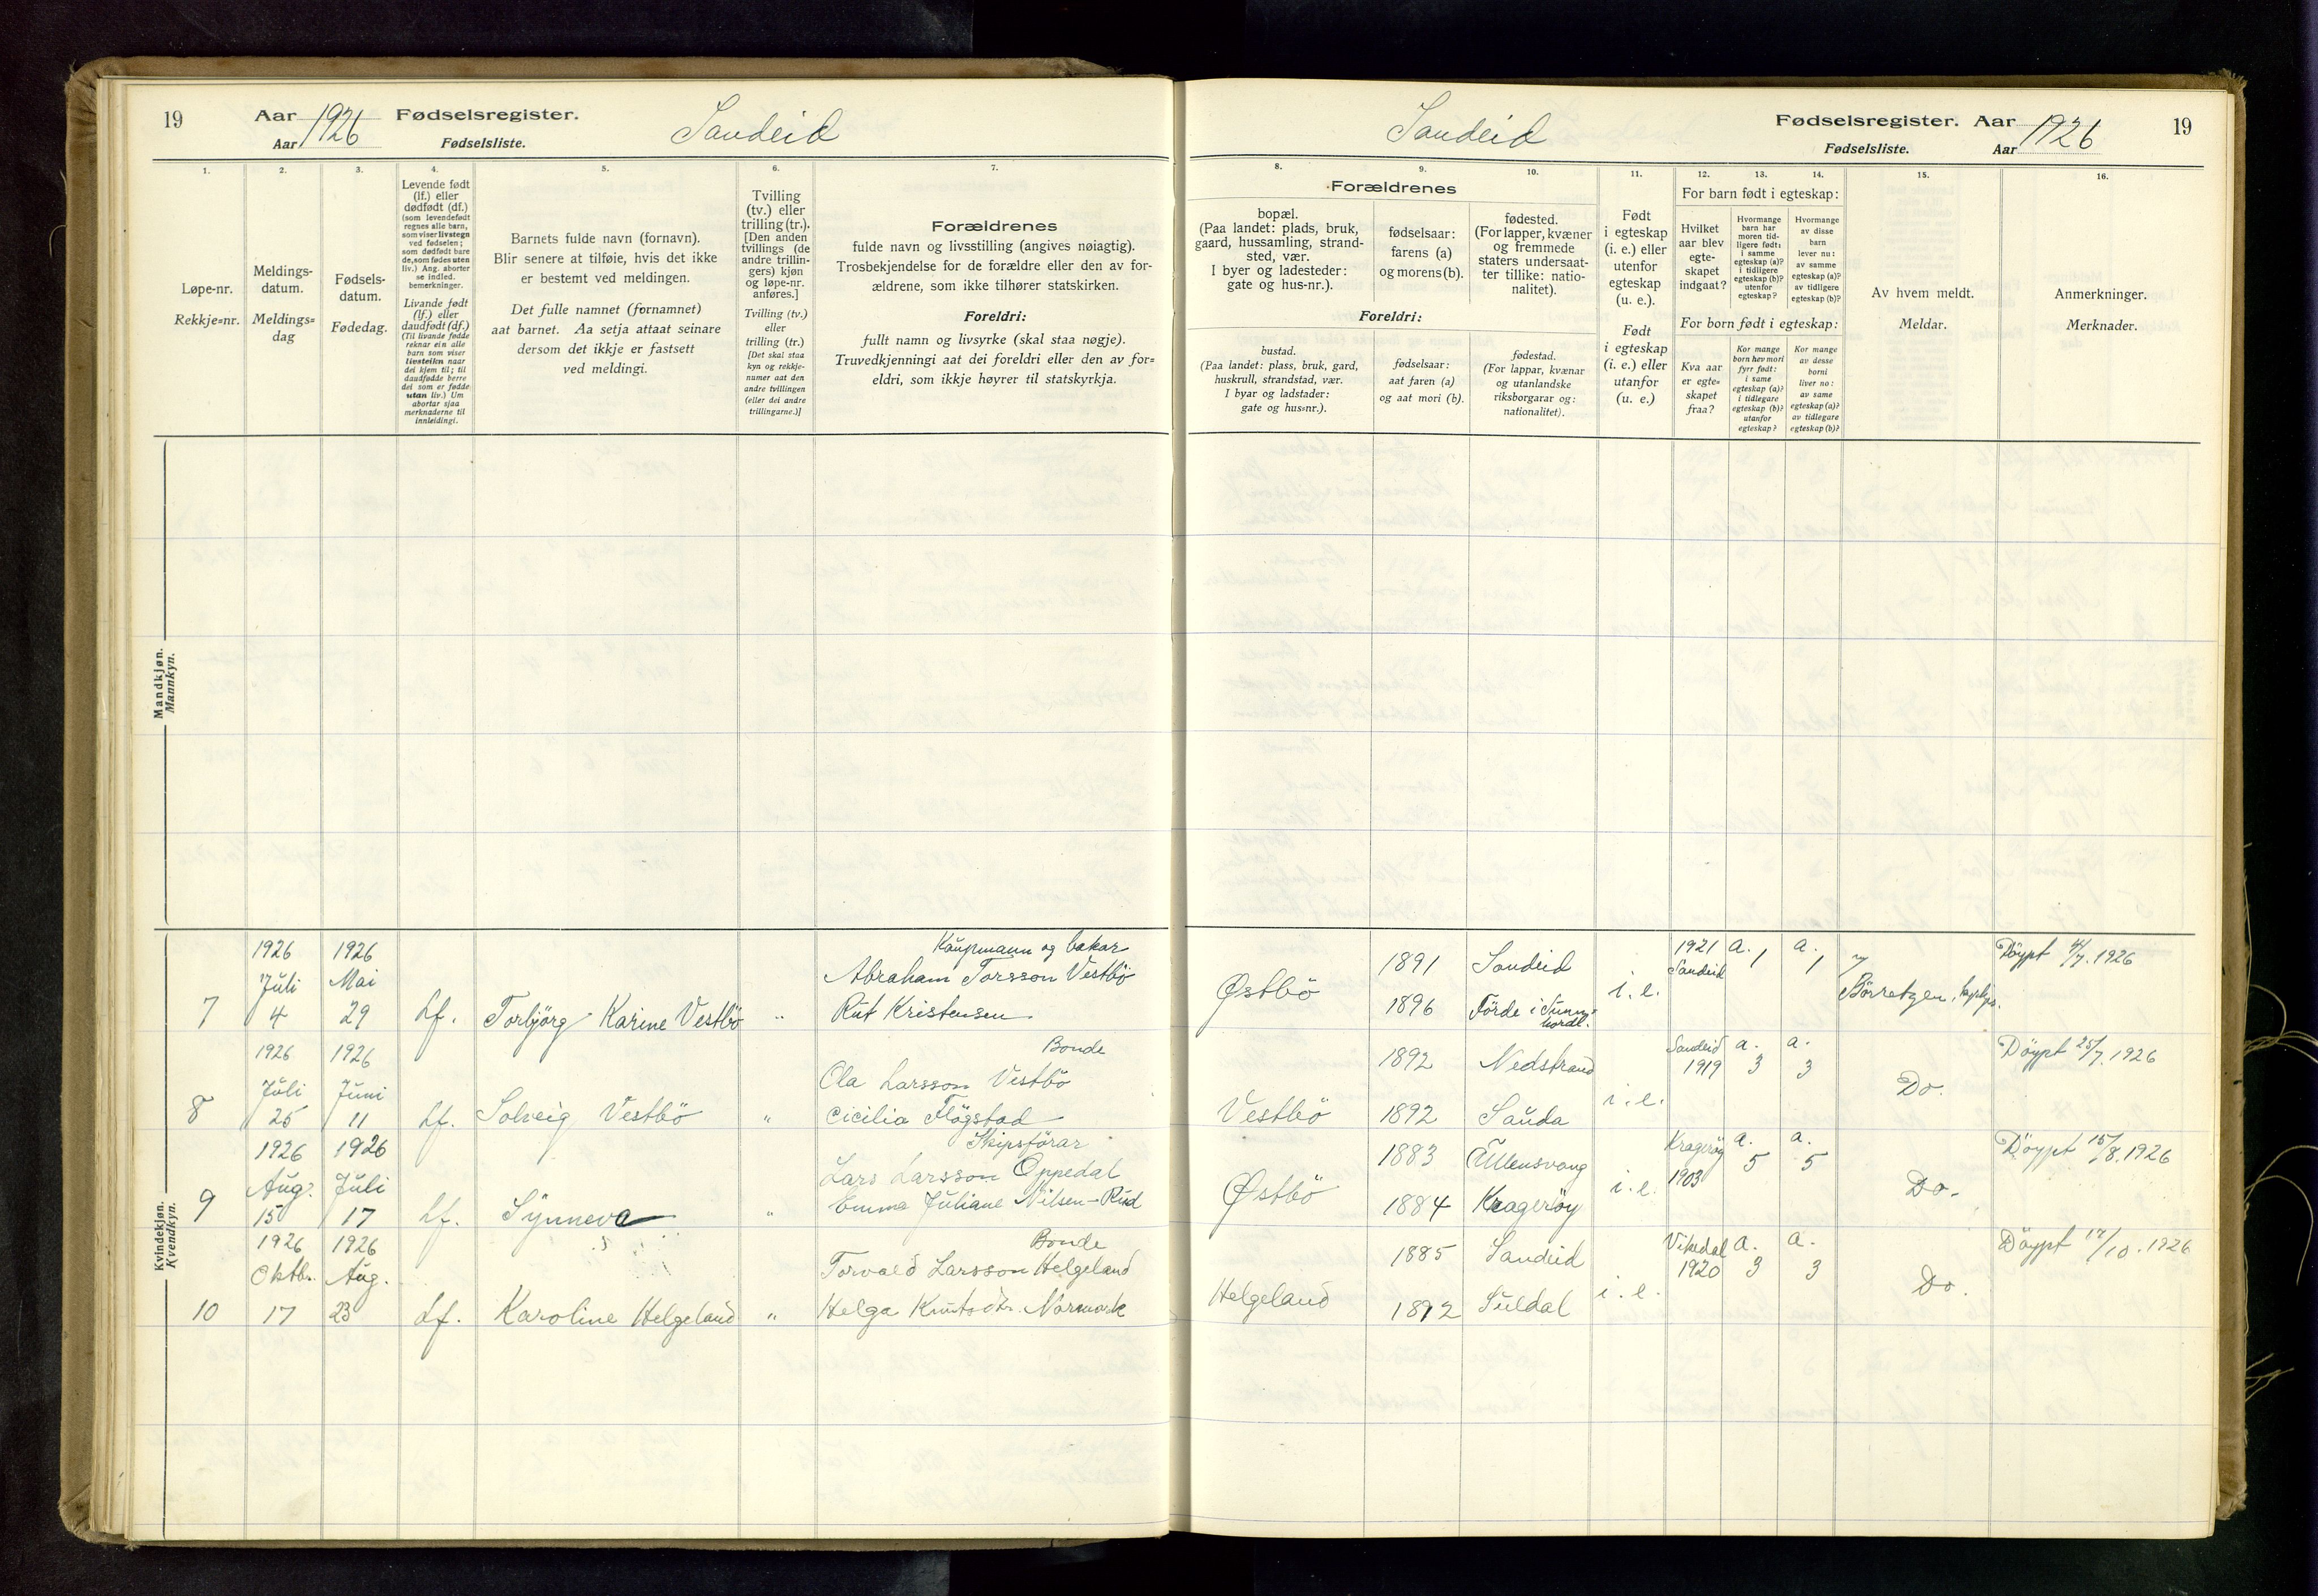 19
Aar 1926
Aar
Fødselsregister.
Fødselsliste.
Sandeid
1.
Løpe-nr.
Rekkje=nr.
2.
Meldings-
datum.
Meldings=
dag
3.
Fødsels-
datum.
Fødedag.
4.
Levende født
(lf.) eller
dødfødt (df.)
(som levendefødt
regnes alle barn,
som viser livstegn
ved fødselen;
som dødfødt bare
de, som fødes uten
liv.) Ang. aborter
se indled.
bemerkninger.
Livande født
(lf.) eller
daudfødt (df.)
(Til livande fødde
reknar ein alle
barn som viser
livsteikn naar
dei kjem til; til
daudfødde berre
dei som er fødde
utan liv.) Um
abortar sjaa
merknaderne til
innleidingi.
5.
Barnets fulde navn (fornavn).
Blir senere at tilføie, hvis det ikke
er bestemt ved meldingen.
Det fulle namnet (fornamnet)
aat barnet. Aa setja attaat seinare
dersom det ikkje er fastsett
ved meldingi.
6.
Tvilling
(tv.) eller
trilling (tr.).
[Den anden
tvillings (de
andre trillin-
gers) kjøn
og løpe-nr.
anføres.]
Tvilling (tv.)
eller
trilling (tr.)
[Det skal staa
kyn og rekkje-
numer aat den
andre tvillingen
(eller dei andre
trillingarne.)]
7.
Forældrenes
fulde navn og livsstilling (angives nøiagtig).
Trosbekjendelse for de forældre eller den av for-
ældrene, som ikke tilhører statskirken.
Foreldri:
fullt namn og livsyrke (skal staa nøgje).
Truvedkjenningi aat dei foreldri eller den av for=
eldri, som ikkje høyrer til statskyrkja.
Mandkjøn.
Mannkyn.
Kvindekjøn.
Kvendkyn.
1926 1926 Kaupmann og bakar
Juli Mai Abraham Torsson Vestbö
7 4 29 Lf. Torbjörg Karine Vestbö " Rut Kristensen
1926 1926 Bonde
Juli Juni Ola Larsson Vestbö
8 25 11 Lf. Solveig Vestbö " Cicilia Flögstad
1926 1926 Skipsförar
Aug. Juli Lars Larsson Oppedal
9 15 17 Lf. Synneva " Emma Juliane Nilsen-Rud
1926 1926 Bonde
Oktb. Aug. Torvald Larsson Helgeland
10 17 23 Lf. Karoline Helgeland " Helga Knutsdtr. Narmork
Sandeid
Fødselsregister. Aar 1926
Fødselsliste. Aar
19
8.
Forældrenes
bopæl.
(Paa landet: plads, bruk,
gaard, hussamling, strand-
sted, vær.
I byer og ladesteder:
gate og hus-nr.).
Foreldri:
bustad.
(Paa landet: plass, bruk, gard,
huskrull, strandstad, vær.
I byar og ladstader:
gate og hus=nr.).
9.
fødselsaar:
farens (a)
og morens (b).
fødselsaar:
aat faren (a)
og aat mori (b).
10.
fødested.
(For lapper, kvæner
og fremmede
staters undersaat-
ter tillike: natio-
nalitet).
fødestad.
(For lappar, kvænar
og utanlandske
riksborgarar og:
nationalitet).
11.
Født
i egteskap
(i. e.) eller
utenfor
egteskap
(u. e.).
Født
i egteskap
(i. e.) eller
utanfor
(u. e.)
12. 13. 14.
For barn født i egteskap:
Hvilket
aar blev
egte-
skapet
indgaat?
Hvormange
barn har
moren tid-
ligere født:
i samme
egteskap (a)?
i tidligere
egteskap (b)?
utenfor
egteskap?
Hvormange
av disse
barn
lever nu:
av samme
egteskap (a)?
av tidligere
egteskap (b)?
For born født i egteskap:
Kva aar
er egte=
skapet
fraa?
Kor mange
born hev mori
fyrr født:
i same
egteskap (a)?
i tidlegare
egteskap (b)?
utanfor
egteskap?
Kor mange
av desse
borni
liver no:
av same
egteskap (a)?
av tidlegare
egteskap (b)?
15.
Av hvem meldt.
Meldar.
16.
Anmerkninger.
Merknader.
1891 Sandeid 1921 a. 1 a. 1 Döypt 4/7. 1926
Østbö i. e. Sandeid Börretzen, kyrkjs.
1896 Förde i Sunn-
hordl.
1892 Nedstrand Sandeid a. 3 a. 3 Döypt 25/7. 1926
1919
Vestbö 1892 Sauda i. e. Do.
1883 Ullensvang Kragerøy a. 5 a. 5 Döypt 15/8. 1926
Østbö i. e. 1903 Do.
1884 Kragerøy
1885 Sandeid Vikedal a. 3 a. 3 Döypt 17/10. 1926
1920
Helgeland 1892 Suldal i. e. Do.